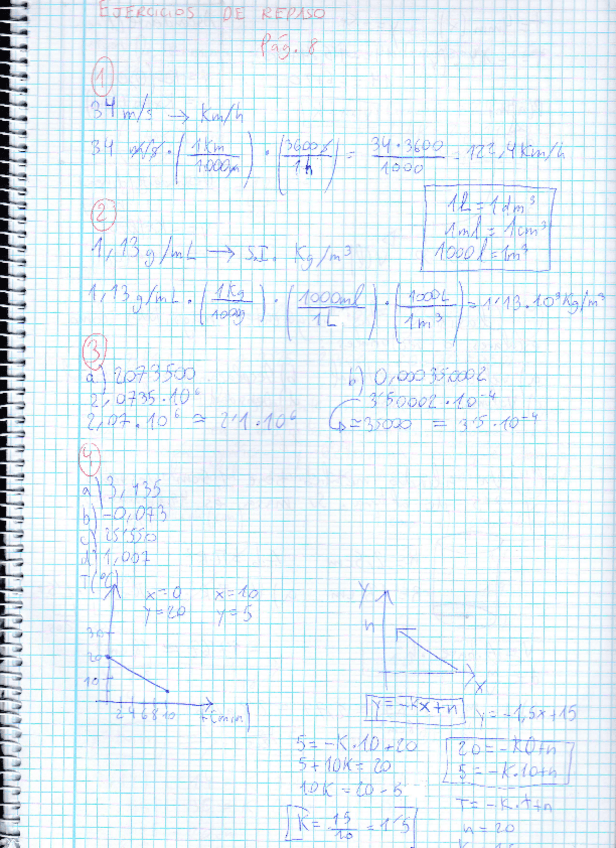 EJERCICIOS DE REPASO
Pág. 8
1
34 m/s → Km/h
34 m/s · (1Km/1000m) · (3600s/1h) = 34·3600/1000 = 122,4 Km/h
2
1L = 1dm³
1ml = 1cm³
1000l = 1m³
1,13 g/mL → S.I. Kg/m³
1,13 g/mL · (1Kg/1000g) · (1000ml/1L) · (1000L/1m³) = 1'13·10³ Kg/m³
3
a) 2073500
2,0735·10⁶
2,07·10⁶ ≈ 2'1·10⁶
b) 0,000350002
3'50002·10⁻⁴
≈35000 = 3'5·10⁻⁴
4
a) 3,135
b) -0,073
c)
d) 1,007
T(ºC)
x=0 x=10
y=20 y=5
30
20
10
2 4 6 8 10 t(min)
y
n
x
y=-Kx+n
y=-1,5x+15
5=-K·10+20
5+10K=20
10K=20-5
K=15/10=1'5
20=-K0+n
5=-K·10+n
T=-K·t+n
n=20